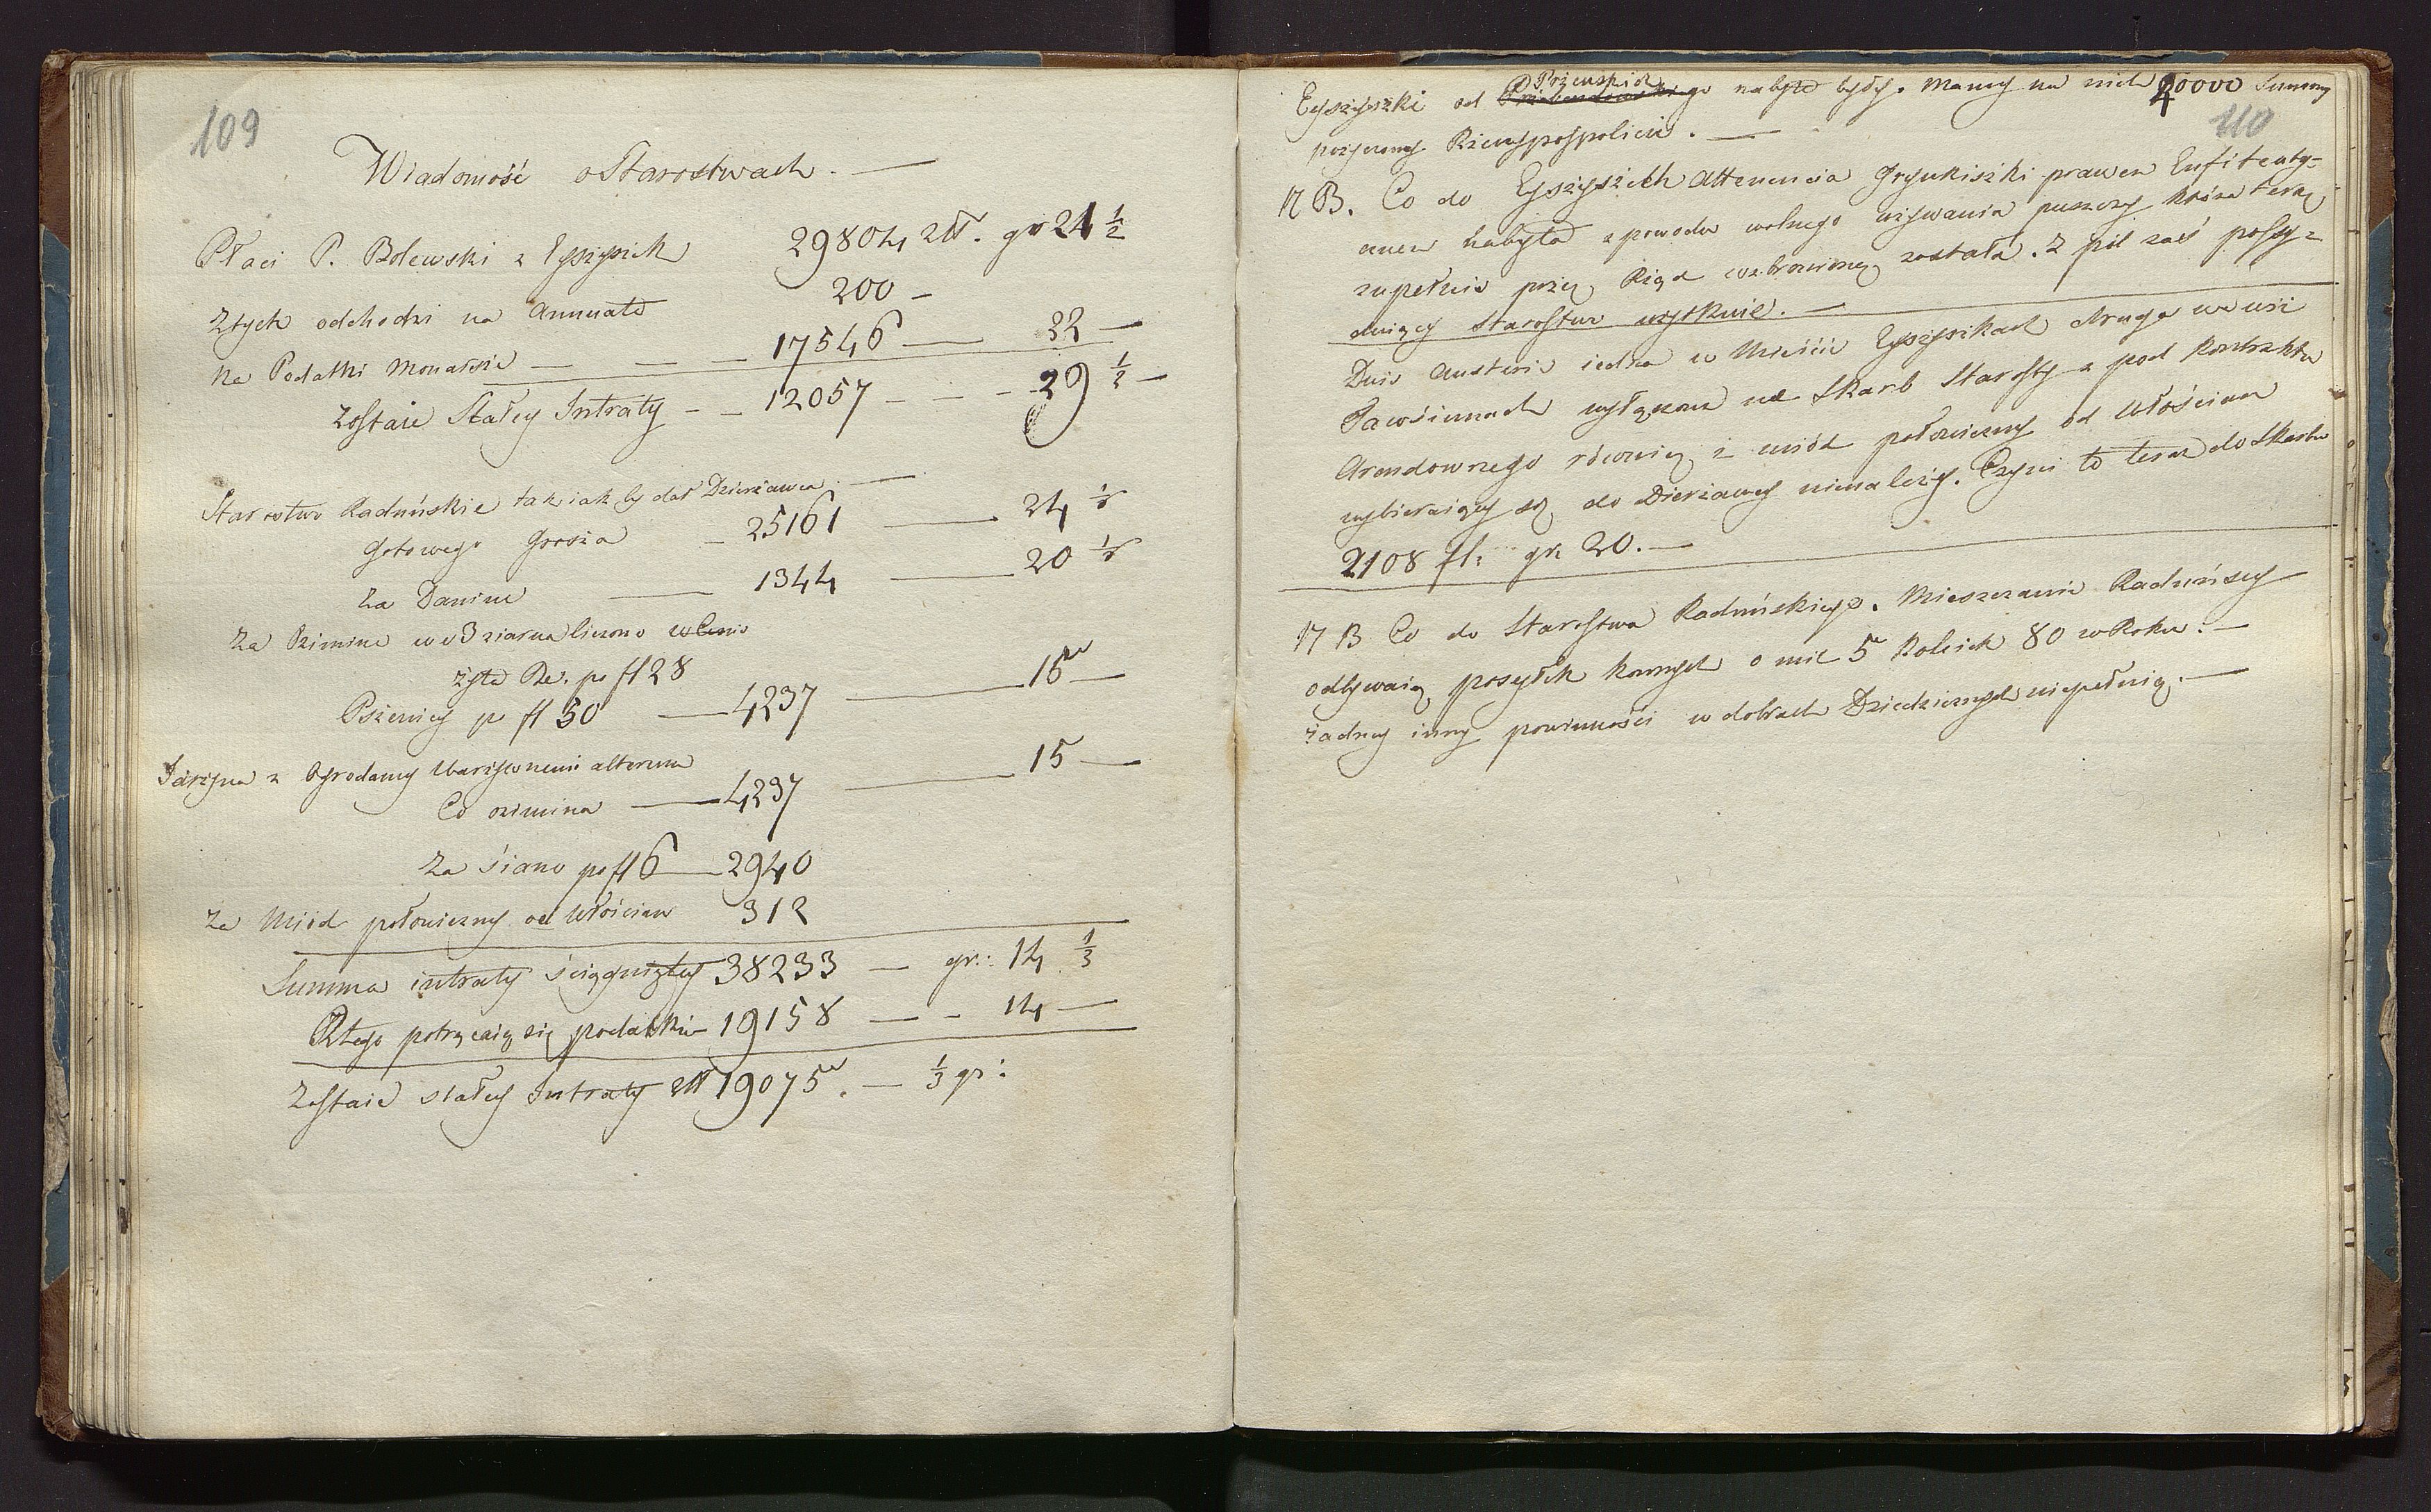 109
Wiadomość o Starostwach. —
Płaci P. Bolewski z Eyszyszek 29804 złł. gr 24 1/2
Z tych odchodzi na Annuatę 200 —
Na Podatki Monarsze — — — 17546 — 22 —
Zostaie Stałey Intraty - - 12057 - - - 29 1/2 —
Starostwo Raduńskie tak iak by dał Dzierżawca. —
Gotowego Grosza — 25161 — 24 1/3
Za Daninę — 1344 — 20 1/3
Za Oziminę we 3 ziarna liczono w Cenie
żyta Be. po fl 28
Pszenicy po fl 50 — 4237 — 15 —
Jarzyna z Ogrodamy Warzywnemi alterum
Co ozimina — 4237 — 15 —
Za śiano po fl 6 — 2940
Za Miód połowiczny od Włościan 312
Summa intraty ściągniętey 38233 — gr: 14 1/3
Z tego potrącaią się podatków 19158 — - 14 —
Zostaie stałey Intraty złł 19075. — 1/3 gr:
110
Eyszyszki od Przeuskich nabyte były. Mamy na nich 40000 Summy
pożyczoney Rzeczypospolicie. —
NB. Co do Eyszyszek Attenencia Grynkiszki prawem Enfiteuty=
cznem nabyta z powodu wolnego używania puszczy która teraz
zupełnie przez Rząd wzbronioną została. Z pól zaś possy=
duiący Starostwa użytkuie. —
Dwie Austerie iedna w Mieście Eyszyszkach druga we wsi
Pawośiunach wyłączone na Skarb Starosty z pod kontraktu
Arendownego równie i miód połowiczny od Włościan
wybieraiący się do Dzierżawcy nienależy. Czyni to teraz do Skarbu
2108 fl: gr 20. —
NB Co do Starostwa Raduńskiego. Mieszczanie Raduńscy
odbywaią posyłek konnych o mil 5 Koleich 80 w Roku. —
żadney inney powinności w dobrach Dziedzicznych niepełnią. —